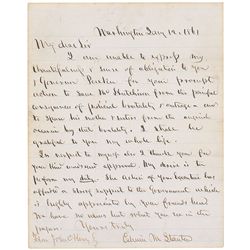 Washington Jany 12. 1861
My dear Sir
I am unable to express my
thankfulness & sense of obligation to you
& Governor Packer for your prompt
action to save Mr Hutchison from the painful
consequences of judicial brutality & outrage &
to spare his mother & sisters from the anguish
caused by that brutality. I shall be
grateful to you my whole life
In respect to myself also I thank you for
your kind approval. My desire is to
perform my duty. The action of your
affords a strong support to the Government which
is highly appreciated by your friends here
We have no news but what you see in the
papers. Yours truly
Edwin M Stanton
Hon John